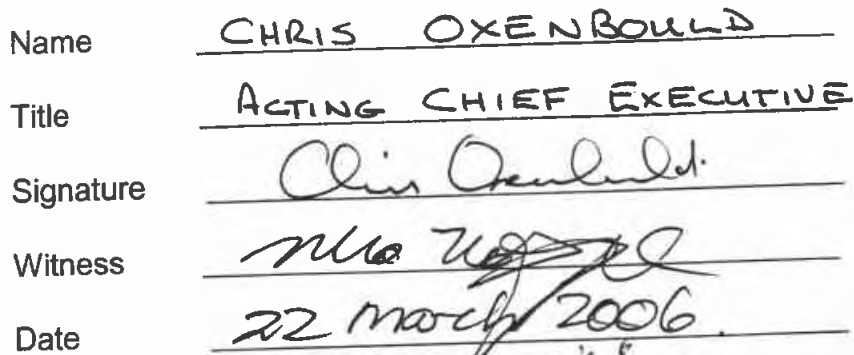 Name CHRIS OXENBOULD
Title ACTING CHIEF EXECUTIVE
Signature Chris Oxenbould.
Witness
Date 22 March 2006.